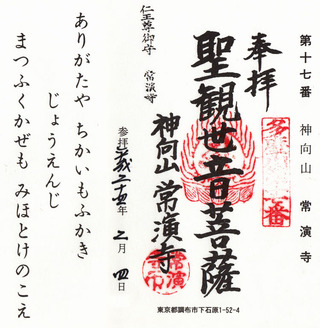 第十七番 神向山 常演寺
奉拝
聖観世音菩薩
神向山 常演寺
参拝 平成二十五年 2月 4日
仁王尊御守 常演寺
ありがたや ちかいもふかき
じょうえんじ
まつふくかぜも みほとけのこえ
東京都調布市下石原1-52-4